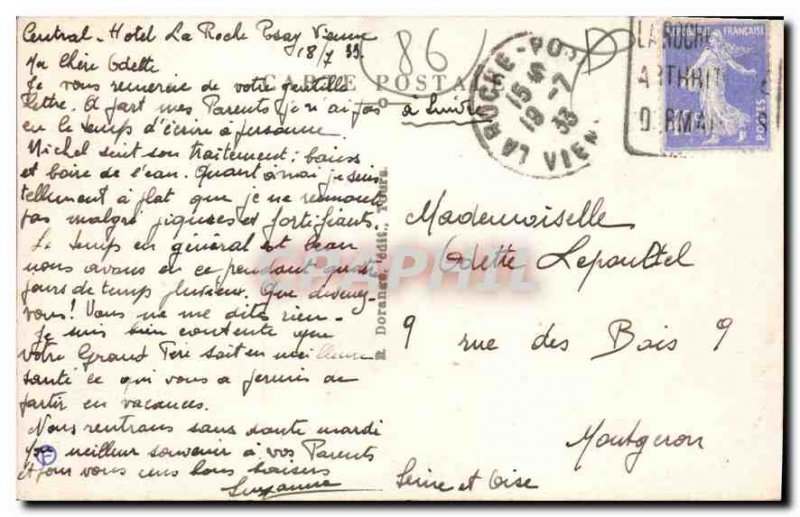 Central-Hotel La Roche Posay Vienne
18/7 33
Ma chère Odette
Je vous remercie de votre gentille
lettre. A part mes Parents je n'ai pas
eu le temps d'écrire à personne.
Michel suit son traitement: bains
et boire de l'eau. Quant à moi je suis
tellement à plat que je ne remonte
pas malgré piqures et fortifiants.
Le temps en général est beau
nous avons eu cependant quatre
jours de temps pluvieux. Que devenez-
vous! Vous ne me dites rien.
Je suis bien contente que
votre Grand Père soit en meilleure
santé ce qui vous a permis de
partir en vacances.
Nous rentrons sans doute mardi
meilleur souvenir à vos Parents
et pour vous uns bons baisers
Suzanne
CARTE POSTALE
86
à suivre
R. Dorange, édit., Tours.
LA ROCHE-POS
15
19-7
33
VIEN.
LA ROCHE
ARTHRIT
DERMA
REPUBLIQUE FRANÇAISE
POSTES
CPAPHIL
Mademoiselle
Odette Lepoultel
9 rue des Bois 9
Montgeron
Seine et Oise